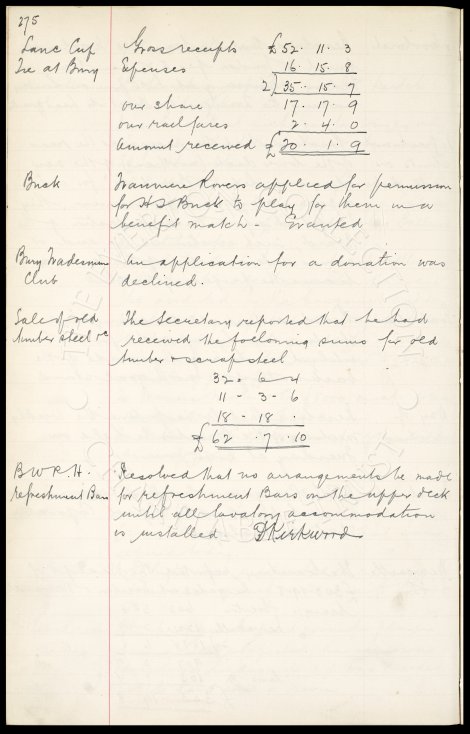 275
Lanc Cup Gross receipts £52. 11. 3
Tie at Bury Expenses 16. 15. 8
2) 35. 15. 7
our share 17. 17. 9
our railfares 2. 4. 0
Amount received £20. 1. 9
Buck Tranmere Rovers applied for permission
for H S Buck to play for them in a
benefit match - Granted
Bury Tradesmen An application for a donation was
Club declined.
Sale of old The Secretary reported that he had
timber steel &c received the following sums for old
timber & scrap steel
32 - 6 - 4
11 - 3 - 6
18 - 18 .
£62 . 7 . 10
B W R. H. Resolved that no arrangements be made
refreshment Bars for refreshment Bars on the upper deck
until all lavatory accommodation
is installed D Kirkwood